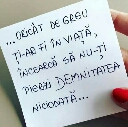 ...ORICÂT DE GREU
ȚI-AR FI ÎN VIAȚĂ,
ÎNCEARCĂ SĂ NU-ȚI
PIERZI DEMNITATEA
NICIODATĂ...